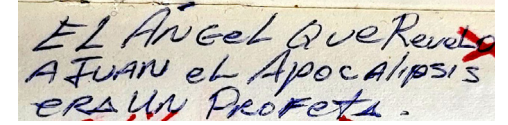 EL ÁNGEL QUE Revelo
A JUAN eL Apocalipsis
eRA UN PROFeta.